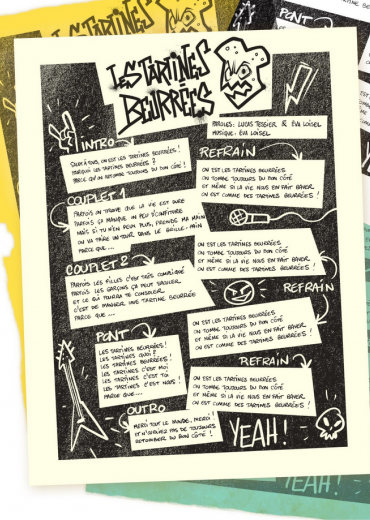 LES TARTINES
BEURRÉES
PAROLES: LUCAS TESSIER & ÉVA LOISEL
MUSIQUE: ÉVA LOISEL
INTRO
SALUT À TOUS, ON EST LES TARTINES BEURRÉES !
POURQUOI LES TARTINES BEURRÉES ?
PARCE QU'ON RETOMBE TOUJOURS DU BON CÔTÉ !
COUPLET 1
PARFOIS ON TROUVE QUE LA VIE EST DURE
PARFOIS ÇA MANQUE UN PEU D'CONFITURE
MAIS SI TU N'EN PEUX PLUS, PRENDS MA MAIN
ON VA FAIRE UN TOUR DANS LE GRILLE-PAIN
PARCE QUE...
COUPLET 2
PARFOIS LES FILLES C'EST TRÈS COMPLIQUÉ
PARFOIS LES GARÇONS ÇA PEUT SAOULER
ET CE QUI POURRA TE CONSOLER
C'EST DE MANGER UNE TARTINE BEURRÉE
PARCE QUE...
PONT
LES TARTINES BEURRÉES !
LES TARTINES QUOI ?
LES TARTINES BEURRÉES !
LES TARTINES C'EST MOI
LES TARTINES C'EST TOI
LES TARTINES C'EST NOUS !
PARCE QUE...
OUTRO
MERCI TOUT LE MONDE, MERCI !
ET N'OUBLIEZ PAS DE TOUJOURS
RETOMBER DU BON CÔTÉ !
REFRAIN
ON EST LES TARTINES BEURRÉES
ON TOMBE TOUJOURS DU BON CÔTÉ
ET MÊME SI LA VIE NOUS EN FAIT BAVER
ON EST COMME DES TARTINES BEURRÉES !
ON EST LES TARTINES BEURRÉES
ON TOMBE TOUJOURS DU BON CÔTÉ
ET MÊME SI LA VIE NOUS EN FAIT BAVER
ON EST COMME DES TARTINES BEURRÉES !
REFRAIN
ON EST LES TARTINES BEURRÉES
ON TOMBE TOUJOURS DU BON CÔTÉ
ET MÊME SI LA VIE NOUS EN FAIT BAVER
ON EST COMME DES TARTINES BEURRÉES !
REFRAIN
ON EST LES TARTINES BEURRÉES
ON TOMBE TOUJOURS DU BON CÔTÉ
ET MÊME SI LA VIE NOUS EN FAIT BAVER
ON EST COMME DES TARTINES BEURRÉES !
YEAH !
PONT
YEAH !